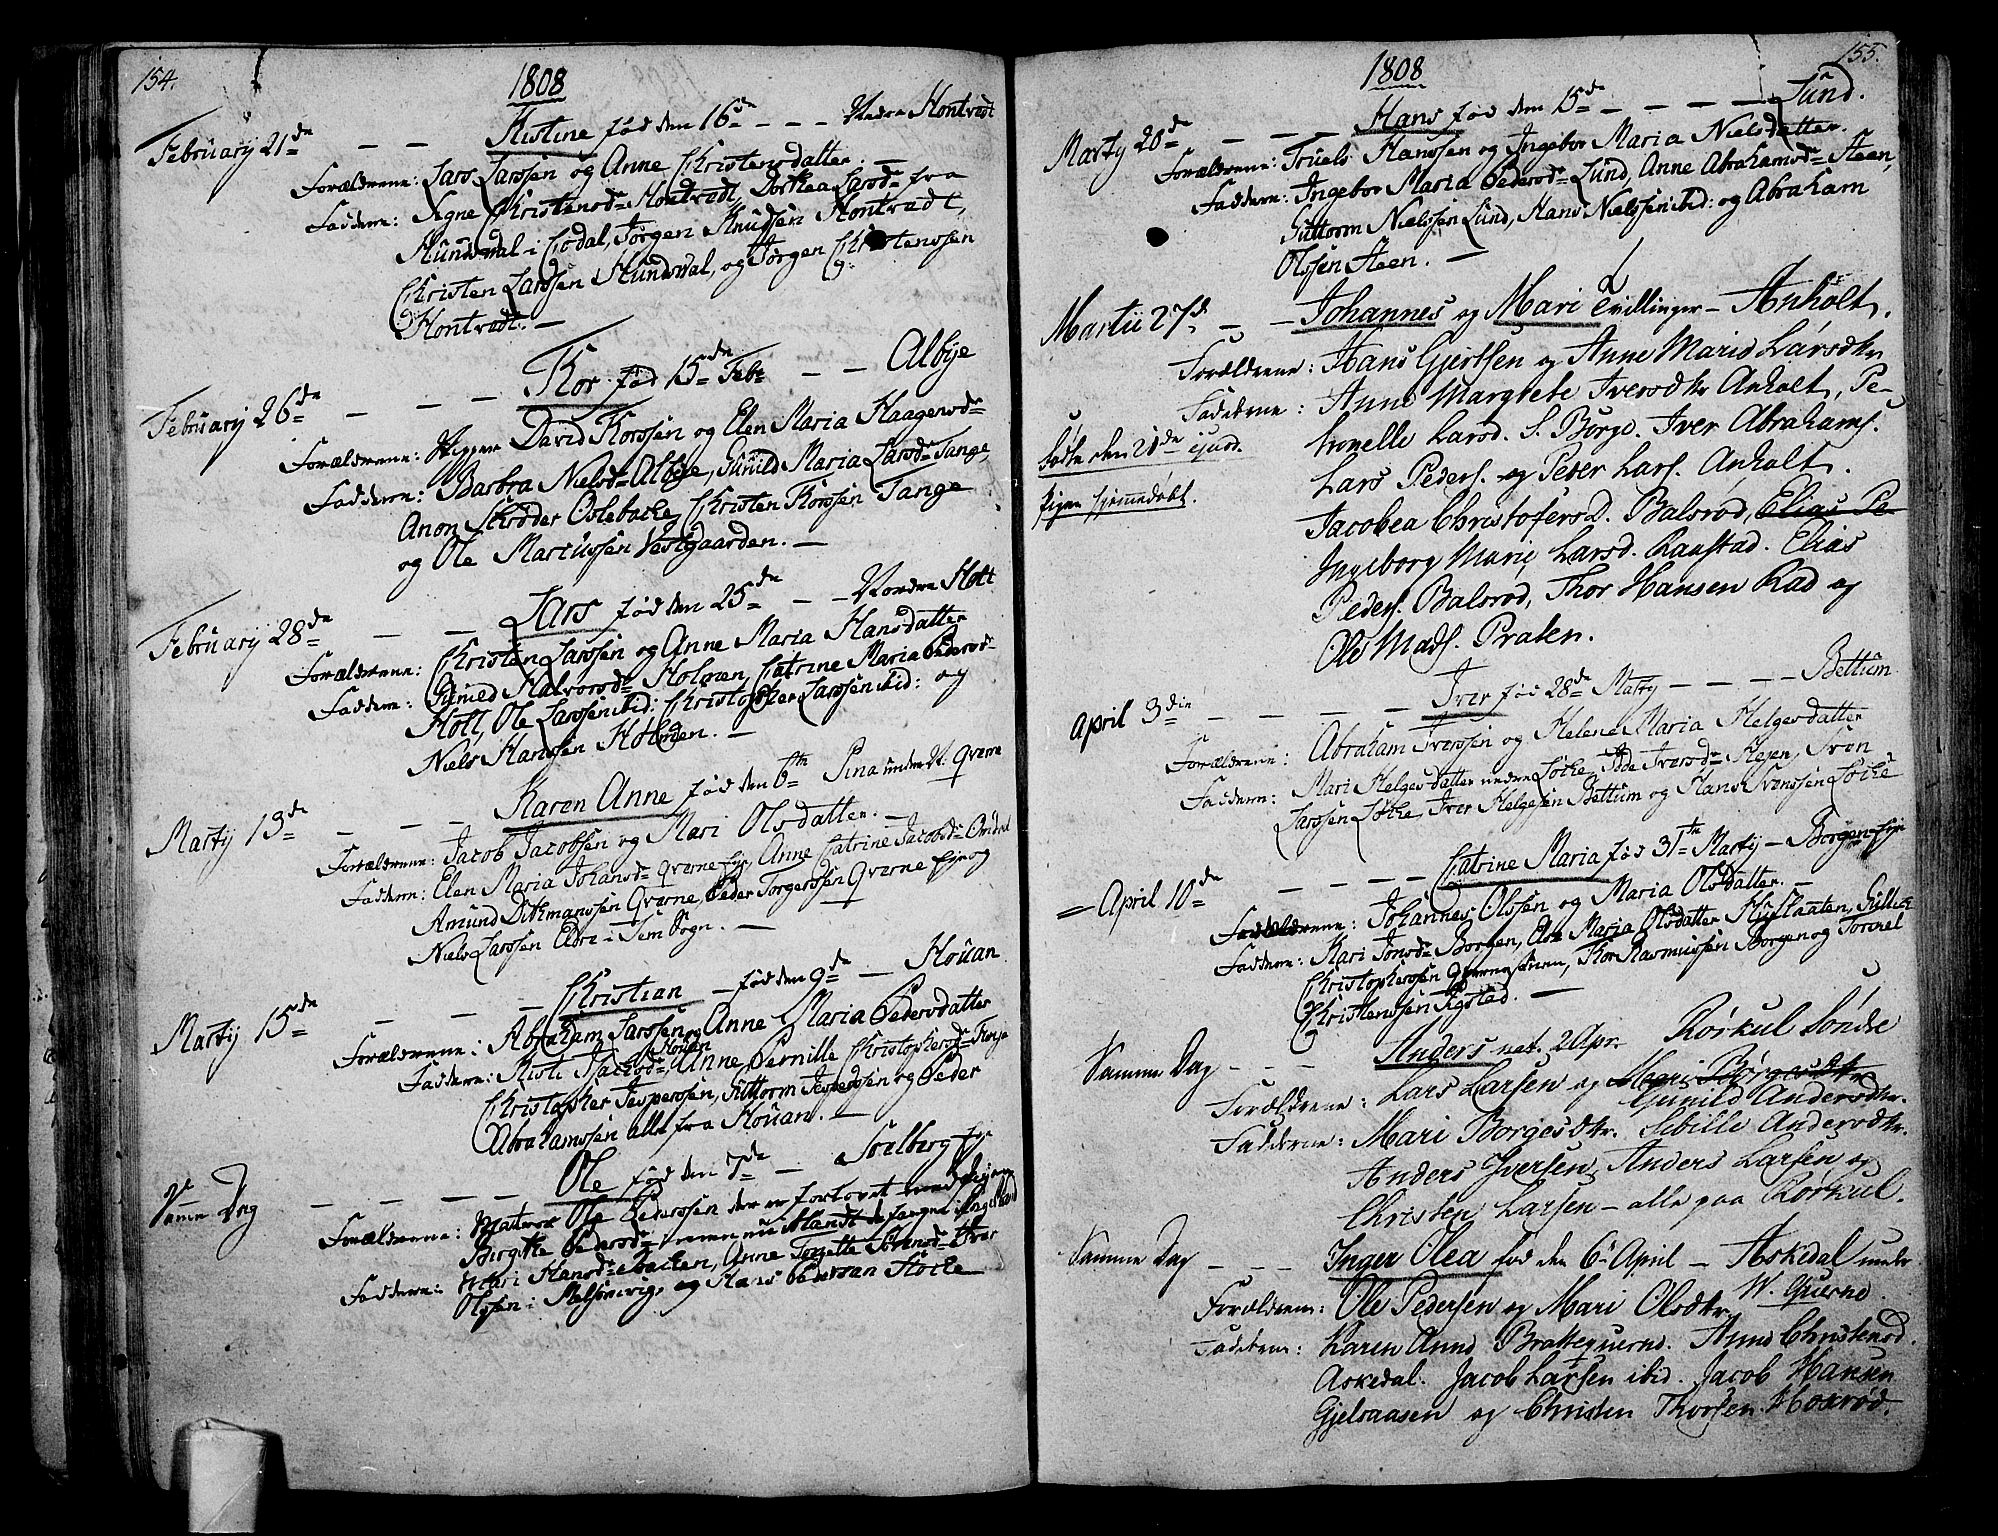 154.
1808
Februarÿ 21de — — Kistine fød den 16de — — — Nedre Hontvedt
Forældrene: Lars Larssen og Anne Christensdatter. —
Fadderne: Signe Christensd. Hontvedt, Dorthea Larsd. fra
Hundsdal i Eidal, Jørgen Knudsen Hontvedt,
Christen Larssen Hundsdal, og Jørgen Christenssen
Hontvedt. —
Februarÿ 26de — — — Thor fød 15de Febr. — — Albÿe
Forældrene: David Thorssen og Elen Maria Haagensd.
Fadderne: Barbra Nielsd. Albÿe, Gunild Maria Larsd. Tange,
Anon Schrøder Oslebacke, Christen Thorssen Tange
og Ole Mariussen Vestgaarden. —
Februarÿ 28de — — Lars fød den 25de — — Nordre Holt
Forældrene: Christen Larssen og Anne Maria Hansdatter
Fadderne: Gunild Halvorsd. Holmen, Catrine Maria Pedersd.
Holt, Ole Larssen ibid: Christopher Larssen ibid: og
Niels Hanssen Holmen. —
Martÿ 13de — — — Karen Anne fød den 6te Pina under V. Qverne
Forældrene: Jacob Jacobssen og Mari Olsdatter. —
Fadderne: Elen Maria Johansd. Qverne eje, Anne Catrine Jacobsd.
Amund Ditmanssen Qverne, Peder Torgerssen Qverne eje og
Niels Larssen i Sem Sogn. —
Martÿ 15de — — — Christian — fød den 9de — Houan
Forældrene: Abraham Larssen og Anne Maria Pedersdatter
Houan
Fadderne: Kisti Isachsd., Anne Pernille Christophersd.
Christopher Jesperssen, Guttorm Jesperssen og Peder
Abrahamssen alle fra Houan. —
Samme Dag — — — Ole fød den 7de — Soelberg eje
Forældrene: Matros Ole Pederssen der er forlovet med
Birgithe Pedersd.
Fadderne: Mari Hansd. Backen, Anne Torgette
Olssen i Melsomvig, og Hans Pederssen Løcke
155.
1808
Martÿ 20de — — — Hans fød den 15de — — — — Lund.
Forældrene: Truels Hanssen og Ingebor Maria Nielsdatter.
Fadderne: Ingebor Maria Pedersd. Lund, Anne Abrahamsd. Steen,
Guttorm Nielssen Lund, Hans Nielssen ibid: og Abraham
Olssen Steen. —
Martii 27de — — Johannes og Mari Tvillinger — Anholt.
Forældrene: Hans Gjertsen og Anne Marie Larsdtr.
Fadderne: Anne Margrete Iversdtr Anholt, Pe-
tronelle Larsd. S. Borge. Iver Abrahams.
fødte den 21de ejusd.
Lars Peders. og Peder Lars. Anholt.
Pigen hjemmedøbt.
Jacobea Christofersd. Balsrød, Elias Pe-
Ingeborg Marie Larsd. Raastad. Elias
Peders. Balsrød, Thor Hansen Rad og
Ole Mads. Præsten.
April 3die — — — — Iver fød 28de Martÿ — — — — Bettum
Forældrene: Abraham Iverssen og Helene Maria Helgesdatter
Fadderne: Mari Helgesdatter nedre Løcke, Idde Iversd. Hejen, Sven
Larssen Løcke, Iver Helgesen Bettum og Hans Svenssen Løcke
April 10de — — — — Catrine Maria fød 31te Martÿ — Borgen eje
Forældrene: Johannes Olssen og Maria Olsdatter. —
Fadderne: Kari Jonsd. Borgen, Ane Maria Olsdatter
Christopherssen, Thor Rasmussen Borgen og
Christenssen Sigstad. —
Samme Dag — — — Anders nat. 2 Apr. Rørkul Søndre
Forældrene: Lars Larsen og Mari Børgesdtr
Gunild Andersdtr.
Fadderne: Mari Borgesdtr. Sibille Andersdtr.
Anders Iversen, Anders Larsen og
Christen Larsen — alle paa Rorkul.
Samme Dag — — — Inger Olea fød den 6te April — Askedal under
V. Qverne.
Forældrene: Ole Pedersen og Mari Olsdtr
Fadderne: Karen Anne Brattequerne. Anne Christensd.
Askedal. Jacob Larsen ibid. Jacob Hansen
Gjelsaasen og Christen Thorsen Hoxrød.